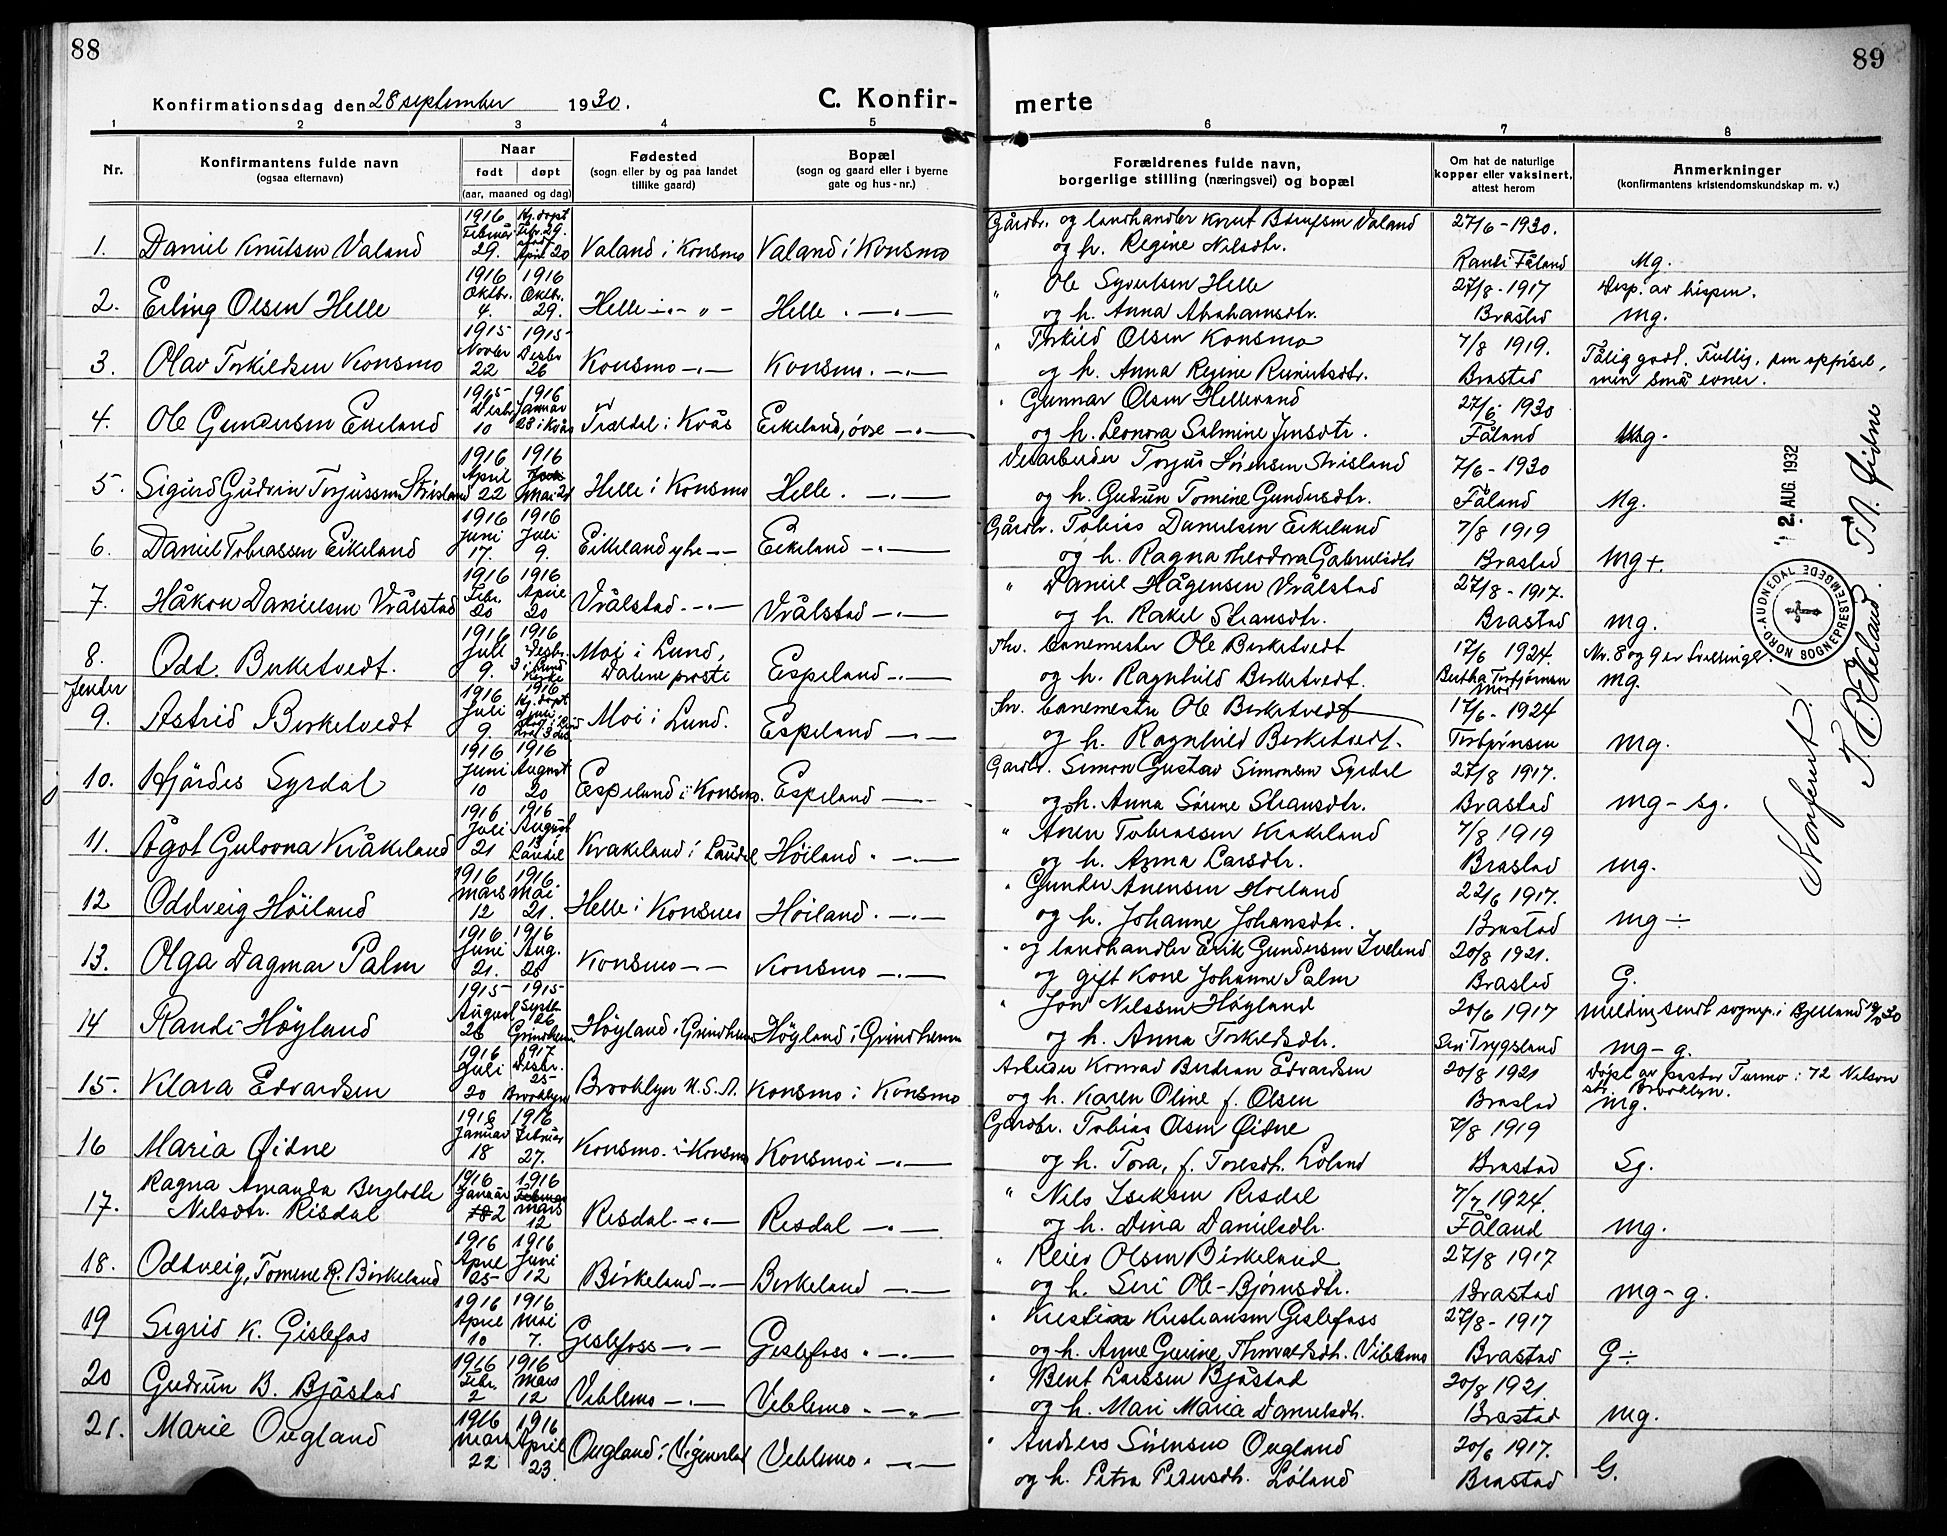 88
89
Konfirmationsdag den 28 september 1930.
C. Konfir-
merte
1 2 3 4 5 6 7 8
Nr.
Konfirmantens fulde navn
(ogsaa efternavn)
Naar
født døpt
(aar, maaned og dag)
Fødested
(sogn eller by og paa landet
tillike gaard)
Bopæl
(sogn og gaard eller i byerne
gate og hus-nr.)
Forældrenes fulde navn,
borgerlige stilling (næringsvei) og bopæl
Om hat de naturlige
kopper eller vaksinert,
attest herom
Anmerkninger
(konfirmantens kristendomskundskap m. v.)
1. Daniel Knutsen Valand
1916 Februar 29.
Hj. døpt Febr. 29. April 20
Valand i Konsmo
Valand i Konsmo
Gårdbr. og landhandler Knut Valand
og h. Regine Nilsdtr.
27/6-1930.
Fåland
Mg.
2. Erling Olsen Helle
1916 Oktbr. 4.
1916 Oktbr. 29.
Helle -"- " -
Helle . -"-
" Ole Syvertsen Helle
og h. Anna Abrahamsdtr.
27/8-1917
Brastad
Disp. av bispen.
Mg.
3. Olav Torkildsen Konsmo
1915 Novbr 22
1915 Desbr 26
Konsmo -"-
Konsmo. -"-
" Torkild Olsen Konsmo
og h. Anna Regine Reiersdtr.
7/8 1919.
Brastad
Tålig god. Flittig, pen oppførsel,
men små evner.
4. Ole Gundersen Eikeland
1915 Desbr 10
1916 Januar 23 i Kvås
Trældal i Kvås
Eikeland, øvre -"-
" Gunnar Olsen Helleland
og h. Leonora Salmine Jensdtr.
27/6 1930
Fåland
Mg.
5. Sigurd Gudvin Torjussen Strisland
1916 April 22
1916 Mai 21
Helle i Konsmo
Helle. -"-
Veiarbeider Torjus Sørensen Strisland
og h. Gudrun Tomine Gundersdtr.
7/6-1930
Fåland
Mg.
6. Daniel Tobiassen Eikeland
1916 Juni 17.
1916 Juli 9.
Eikeland ytre -"-
Eikeland -"-
Gårdbr. Tobias Danielsen Eikeland
og h. Ragna Theodora Gabrielsdtr
7/8 1919
Brastad
Mg+.
7. Håkon Danielsen Vrålstad
1916 Febr. 20
1916 April 20
Vrålstad. -"-
Vrålstad -"-
" Daniel Hågensen Vrålstad
og h. Rakel Stiansdtr.
27/8-1917.
Brastad
Mg.
8. Odd. Birketvedt.
1916 Juli 9.
1916 Desbr. 3 i Lund kirke
Moi i Lund,
Dalene prosti
Espeland -"-
Fhv. banemester Ole Birketvedt
og h. Ragnhild Birketvedt.
17/6 1924.
Bertha Torbjørnsen
Moi
Nr. 8 og 9 er tvillinger.
Mg.
9. Astrid Birketvedt
1916 Juli 9.
1916 Hj. døpt
Moi i Lund.
Espeland -"-
Fhv. banemester Ole Birketvedt
og h. Ragnhild Birketvedt.
17/6-1924
Torbjørnsen
Mg.
10. Hjørdis Syrdal
1916 Juni 10
1916 August 20
Espeland i Konsmo.
Espeland -"-
Gårdbr. Simon Gustav Simonsen Syrdal
og h. Anna Sørine Stiansdtr.
27/8 1917.
Brastad
Mg - sg.
11. Ågot Gulovna Kråkeland
1916 Juli 21
1916 August 13 Laudal
Kråkeland i Laudal
Høiland. -"-
" Anen Tobiassen Kråkeland
og h. Anna Larsdtr.
7/8 1919
Brastad
Mg.
12 Oddveig Høiland
1916 Mars 12
1916. Mai 21.
Helle i Konsmo
Høiland. -"-
" Gunder Anensen Høiland
og h. Johanne Johansdtr.
22/6 1917.
Brastad
Mg ÷
13. Olga Dagmar Palm
1916 Juni 21.
1916 Aug. 20
Konsmo -"-
Konsmo -"-
" og landhandler Erik Gundersen Iveland
og gift kone Johanne Palm
20/8 1921.
Brastad
G.
14 Randi Høyland
1915 August 26
1915 Septbr 26 Grindheim
Høyland i Grindheim
Høyland i Grindheim
" Jon Nilssen Høyland
og h. Anna Torkildsdtr.
20/6 1917
Siri Trygsland
Melding sendt sognep. i Bjelland
Mg - g.
15. Klara Edvardsen
1916 Juli 20
1917 Desbr. 25 Brooklyn
Brooklyn U.S.A.
Konsmo i Konsmo
Arbeider Konrad Edvardsen
og h. Karen Oline f. Olsen
20/8 1921
Brastad
Døpt av pastor Turmo i 72 Nilson
str. Brooklyn.
Mg.
16 Maria Øidne
1916 Januar 18
1916 Februar 27.
Konsmo. i Konsmo
Konsmo i -"-
Gårdbr. Tobias Olsen Øidne
og h. Tora, f. Toresdtr. Løland
7/8 1919
Brastad
Sg.
17. Ragna Amanda Berglotte
Nilsdtr. Risdal
1916 Januar 2
1916 Mars 12
Risdal. -"-
Risdal -"-
" Nils Isaksen Risdal
og h. Dina Danielsdtr.
7/7 1924.
Fåland
Mg.
18. Oddveig, Tomine R. Birkeland
1916 April 25
1916 Juni 12
Birkeland -"-
Birkeland -"-
" Reier Olsen Birkeland
og h. Siri Ole-Bjørnsdtr.
27/8 1917
Brastad
Mg - g.
19 Sigrid K. Gislefos
1916 April 10
1916 Mai 7.
Gislefoss -"-
Gislefoss. -"-
" Kristian Kristiansen Gislefoss
og h. Anne Gurine Thorvaldsdtr. Viblemo
27/8-1917
Brastad
G÷
20 Gudrun B. Bjåstad
1916 Febr. 2
1916 Mars 12
Viblemo -"-
Viblemo. -"-
" Bent Larssen Bjåstad
og h. Mari Maria Danielsdtr.
20/8 1921.
Brastad
Mg.
21. Marie Øugland
1916 Mars 22
1916 April 23.
Øugland i Vigmostad
Viblemo. -"-
" Anders Sørensen Øugland
og h. Petra Pedersdtr. Løland
20/6 1917.
Brastad
G.
Konferert!
2. AUG. 1932
NORD-AUDNEDAL SOGNEPRESTEMBEDE
T. Eikeland. T. A. Øidne